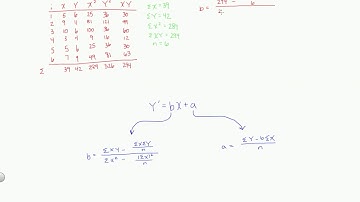 i X Y X² Y² XY
1 5 6 25 36 30
2 9 9 81 81
3 10 6 100 36 60
4 3 4 9 16 12
5 5 6 25 36 30
6 7 9 49 81 63
Σ 39 42 289 326 294
ΣX = 39
ΣY = 42
ΣX² = 289
ΣXY = 294
n = 6
b =
294 - 6
Y' = bX + a
b = ΣXY - ΣXΣY n
ΣX² - n
a = ΣY - bΣX
n